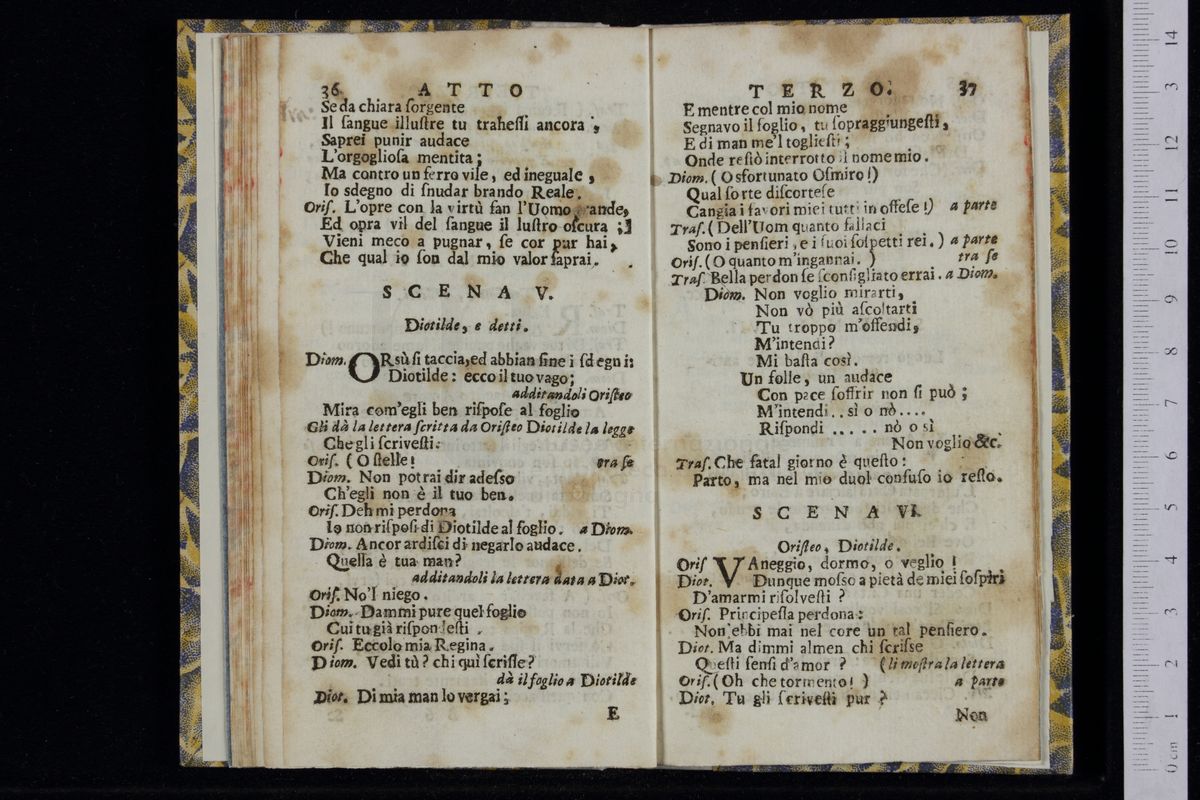 36 ATTO
Se da chiara ſorgente
Il ſangue illuſtre tu traheſſi ancora,
Saprei punir audace
L'orgoglioſa mentita;
Ma contro un ferro vile, ed ineguale,
Io sdegno di ſnudar brando Reale.
Oriſ. L'opre con la virtù fan l'Uomo ande,
Ed opra vil del ſangue il luſtro oſcura;
Vieni meco a pugnar, ſe cor pur hai,
Che qual io ſon dal mio valor ſaprai.
SCENA V.
Diotilde, e detti.
Diom. ORsù ſi taccia, ed abbian fine i ſdegni:
Diotilde: ecco il tuo vago;
additandoli Oriſteo
Mira com'egli ben riſpoſe al foglio
Gli dà la lettera ſcritta da Oriſteo Diotilde la legge
Che gli ſcriveſti:
Oriſ. (O ſtelle! tra ſe
Diom. Non potrai dir adeſſo
Ch'egli non è il tuo ben.
Oriſ. Deh mi perdona
Io non riſpoſi di Diotilde al foglio. a Diom.
Diom. Ancor ardiſci di negarlo audace.
Quella è tua man?
additandoli la lettera data a Diot.
Oriſ. No'l niego.
Diom. Dammi pure quel foglio
Cui tu già riſpondeſti.
Oriſ. Eccolo mia Regina.
Diom. Vedi tù? chi quì ſcriſſe?
dà il foglio a Diotilde
Diot. Di mia man lo vergai;
E
TERZO. 37
E mentre col mio nome
Segnavo il foglio, tu ſopraggiungeſti,
E di man me'l toglieſti;
Onde reſtò interrotto il nome mio.
Diom. (O sfortunato Oſmiro!)
Qual ſorte diſcorteſe
Cangia i favori miei tutti in offeſe!) a parte
Traſ. (Dell'Uom quanto fallaci
Sono i penſieri, e i ſuoi ſoſpetti rei.) a parte
Oriſ. (O quanto m'ingannai.) tra ſe
Traſ. Bella perdon ſe ſconſigliato errai. a Diom.
Diom. Non voglio mirarti,
Non vò più aſcoltarti
Tu troppo m'offendi,
M'intendi?
Mi baſta così.
Un folle, un audace
Con pace ſoffrir non ſi può;
M'intendi.. sì o nò....
Riſpondi ..... nò o sì
Non voglio &c.
Traſ. Che fatal giorno è queſto:
Parto, ma nel mio duol confuſo io reſto.
SCENA VI.
Oriſteo, Diotilde.
Oriſ VAneggio, dormo, o veglio!
Diot. Dunque moſſo a pietà de miei ſoſpiri
D'amarmi riſolveſti?
Oriſ. Principeſſa perdona:
Non ebbi mai nel core un tal penſiero.
Diot. Ma dimmi almen chi ſcriſſe
Queſti ſenſi d'amor? (li moſtra la lettera
Oriſ. (Oh che tormento!) a parte
Diot. Tu gli ſcriveſti pur?
Non
14
13
12
11
10
9
8
7
6
5
4
3
2
1
0 cm